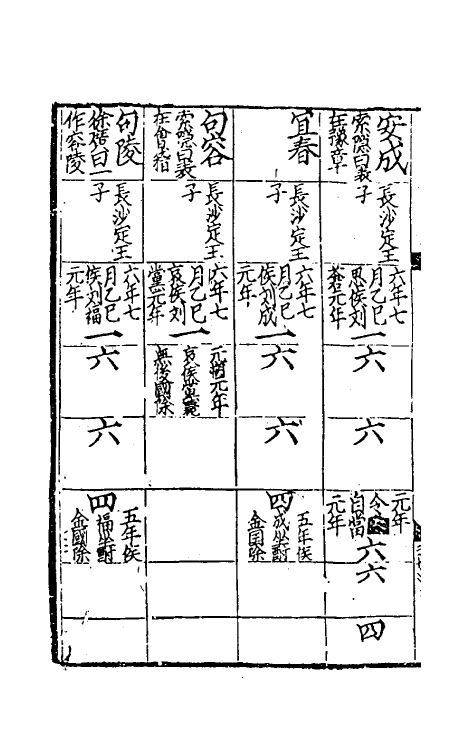 安成
索隱曰表
在豫章
長沙定王
子
六年七
月乙巳
思侯刘
蒼元年
一
六
六
元年
今
自當
元年
六
六
四
宜春
長沙定王
子
六年七
月乙巳
侯刘成
元年
一
六
六
四
五年侯
成坐酎
金国除
句容
索隱曰表
在會稽
長沙定王
子
六年七
月乙巳
哀侯刘
黨元年
一
元朔元年
哀侯黨薨
無後國除
句陵
徐廣曰一
作容陵
長沙定王
子
六年七
月乙巳
侯刘福
元年
一
六
六
四
五年侯
福坐酎
金國除